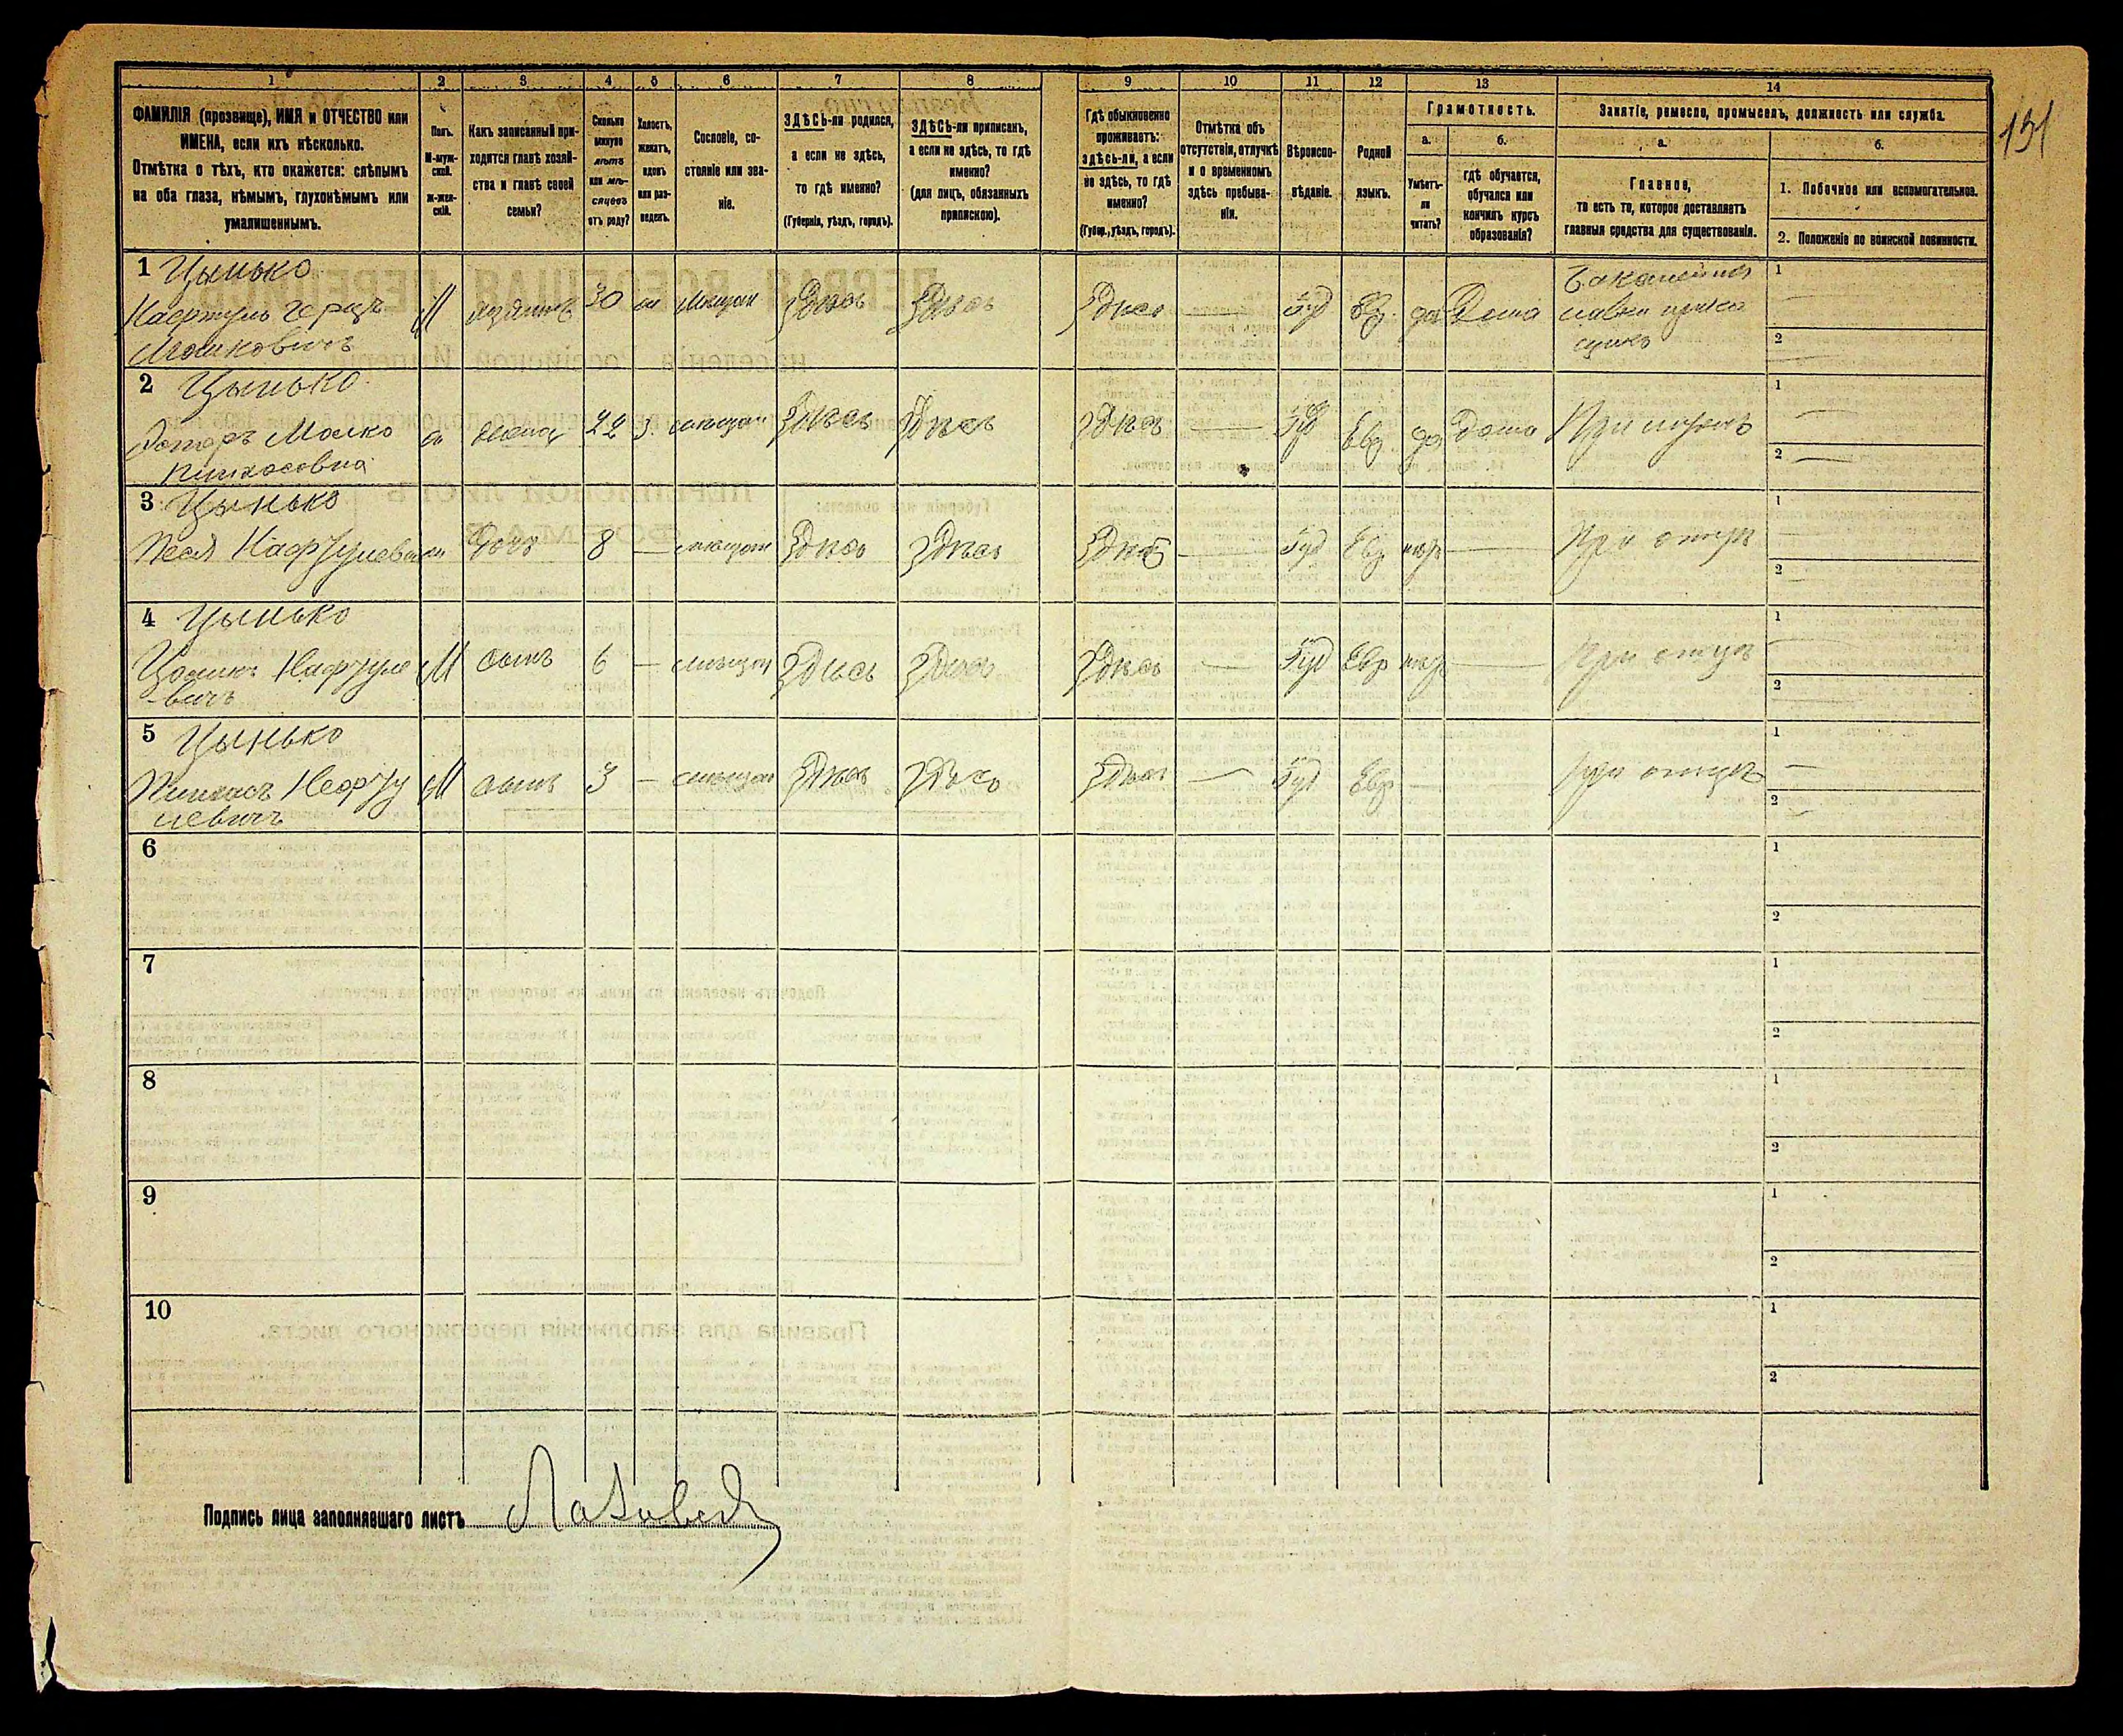 151
1 2 3 4 5 6 7 8 9 10 11 12 13 14
ФАМИЛІЯ (прозвище), ИМЯ и ОТЧЕСТВО или
ИМЕНА, если ихъ нѣсколько.
Отмѣтка о тѣхъ, кто окажется: слѣпымъ
на оба глаза, нѣмымъ, глухонѣмымъ или
умалишеннымъ.
Полъ.
М-муж-
ской.
Ж-жен-
скій.
Какъ записанный при-
ходится главѣ хозяй-
ства и главѣ своей
семьи?
Сколько
минуло
лѣтъ
или мѣ-
сяцевъ
отъ роду?
Холостъ,
женатъ,
вдовъ
или раз-
веденъ.
Сословіе, со-
стояніе или зва-
ніе.
ЗДѢСЬ-ли родился,
а если не здѣсь,
то гдѣ именно?
(Губернія, уѣздъ, городъ).
ЗДѢСЬ-ли приписанъ,
а если не здѣсь, то гдѣ
именно?
(для лицъ, обязанныхъ
припискою).
Гдѣ обыкновенно
проживаетъ:
здѣсь-ли, а если
не здѣсь, то гдѣ
именно?
(Губер., уѣздъ, городъ).
Отмѣтка объ
отсутствіи, отлучкѣ
и о временномъ
здѣсь пребыва-
ніи.
Вѣроиспо-
вѣданіе.
Родной
языкъ.
Грамотность.
а.
Умѣетъ-
ли
читать?
б.
гдѣ обучается,
обучался или
кончилъ курсъ
образованія?
Занятіе, ремесло, промыселъ, должность или служба.
а.
Главное,
то есть то, которое доставляетъ
главныя средства для существованія.
б.
1. Побочное или вспомогательное.
2. Положеніе по воинской повинности.
1 Цынько
Нафтуль Герцъ
Мошковичъ
М хозяинъ 30 ж мѣщан Здѣсь Здѣсь Здѣсь — Іуд Евр. да Дома
1 —
2 —
2 Цынько
Эстеръ Малко
Пинхасовна
ж жена 22 З мѣщан Здѣсь Здѣсь Здѣсь — Іуд Евр да дома При мужѣ
1 —
2 —
3 Цынько
Песя Нафтулевна
ж дочь 8 — мѣщан Здѣсь Здѣсь Здѣсь — Іуд Евр нѣтъ — При отцѣ
1 —
2 —
4 Цынько
Нафтуле
-вичъ
М сынъ 6 — мѣщан Здѣсь Здѣсь Здѣсь — Іуд Евр нѣтъ — При отцѣ
1 —
2 —
5 Цынько
Пинхасъ Нафту
левичъ
М сынъ 3 — мѣщан Здѣсь Здѣсь Здѣсь — Іуд Евр — При отцѣ
1 —
2 —
6
1
2
7
1
2
8
1
2
9
1
2
10
1
2
Подпись лица заполнявшаго листъ